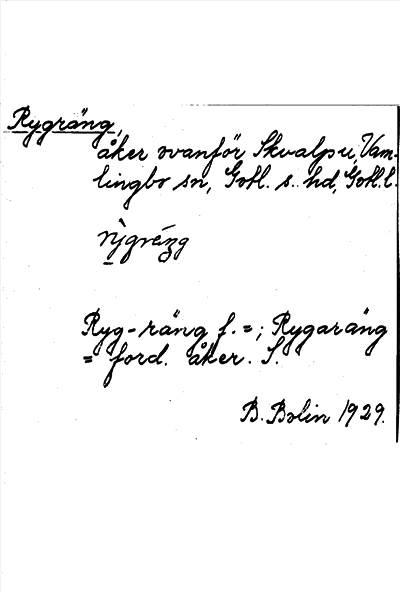 Rygräng,
åker ovanför Skvalpu, Vam-
lingbo sn, Gotl. s. hd, Gotl. l.
rỳgréŋg
Ryg-räng f. =; Rygaräng
= ford. åker. S.
B. Bolin 1929.